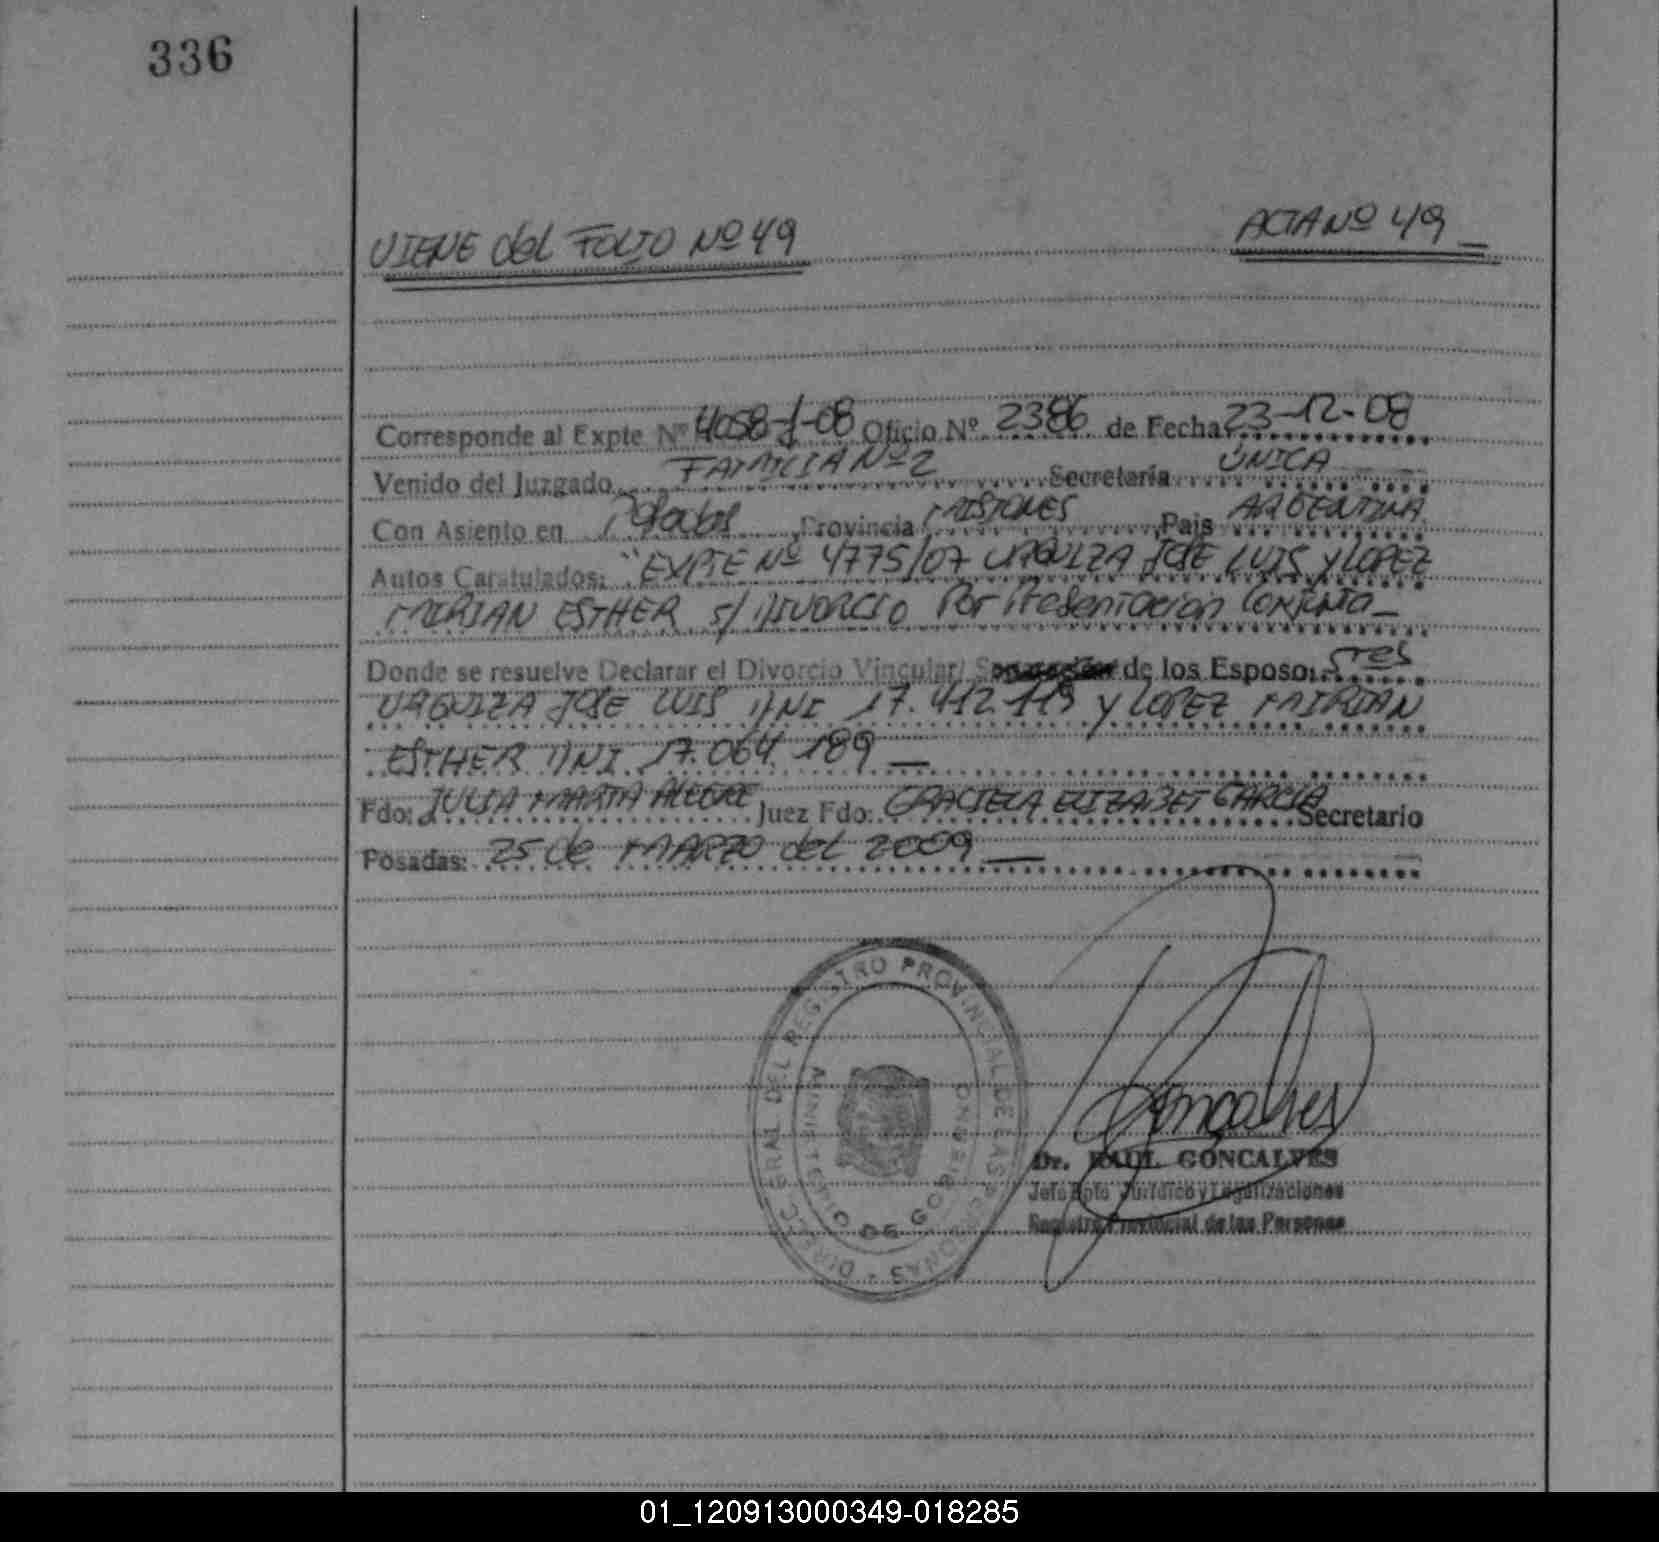 336
VIENE del FOLIO Nº 49
ACTA Nº 49
Corresponde al Expte Nº 4058-J-08 Oficio Nº 2386 de Fecha 23-12-08
Venido del Juzgado FAMILIA Nº 2 Secretaría ÚNICA
Con Asiento en Posadas Provincia MISIONES Pais ARGENTINA
Autos Caratulados: "EXPTE Nº 4775/07 URQUIZA JOSE LUIS y LOPEZ
MIRIAN ESTHER s/ DIVORCIO Por Presentacion Conjunta
Donde se resuelve Declarar el Divorcio Vincular/ Separación de los Esposo: sres
URQUIZA JOSE LUIS DNI 17.412.113 y LOPEZ MIRIAN
ESTHER DNI 17.064.189
Fdo: JULIA MARTA ALEGRE Juez Fdo: GRACIELA ELIZABET GARCIA Secretario
Posadas: 25 de MARZO del 2009
DIREC. GRAL. DEL REGISTRO PROVINCIAL DE LAS PERSONAS
MINISTERIO DE GOBIERNO
Goncalves
Dr. RAUL GONCALVES
Jefe Dpto Jurídico y Legalizaciones
Registro Provincial de las Personas
01_120913000349-018285